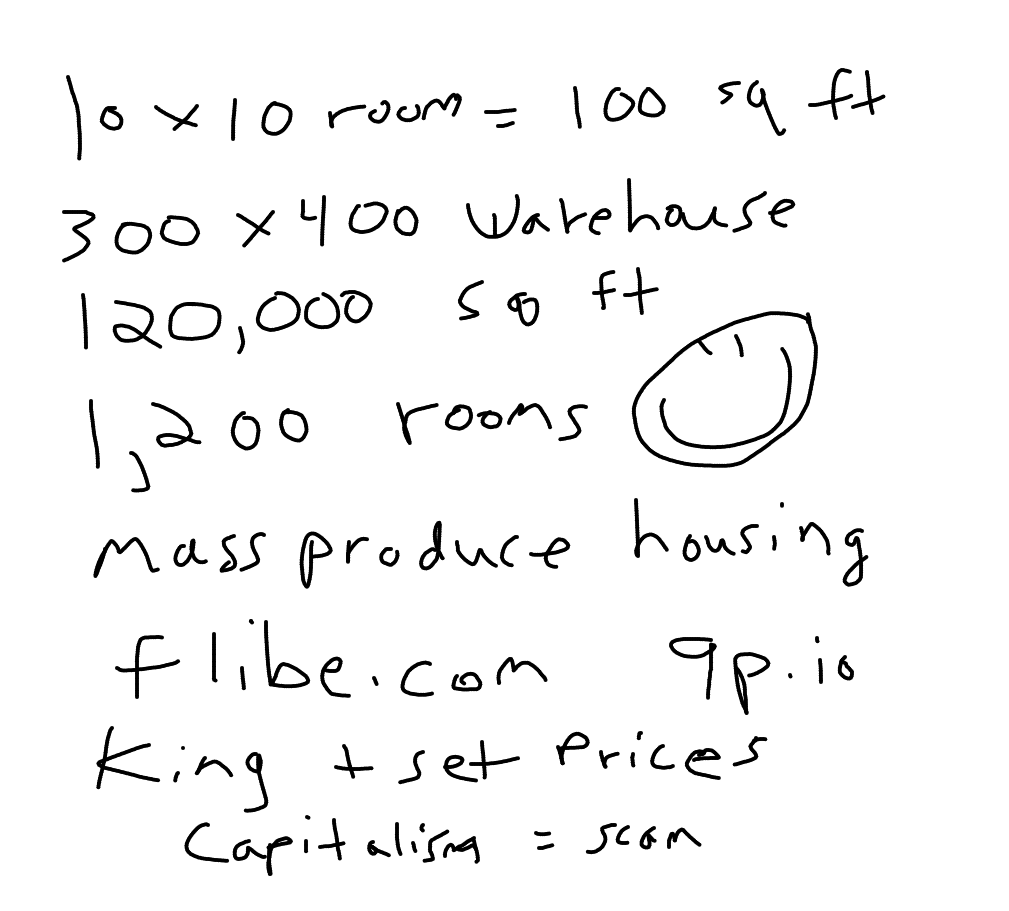 10 x 10 room = 100 sq ft
300 x 400 warehouse
120,000 sq ft
1,200 rooms
mass produce housing
flibe.com 9p.io
King + set prices
Capitalism = scam